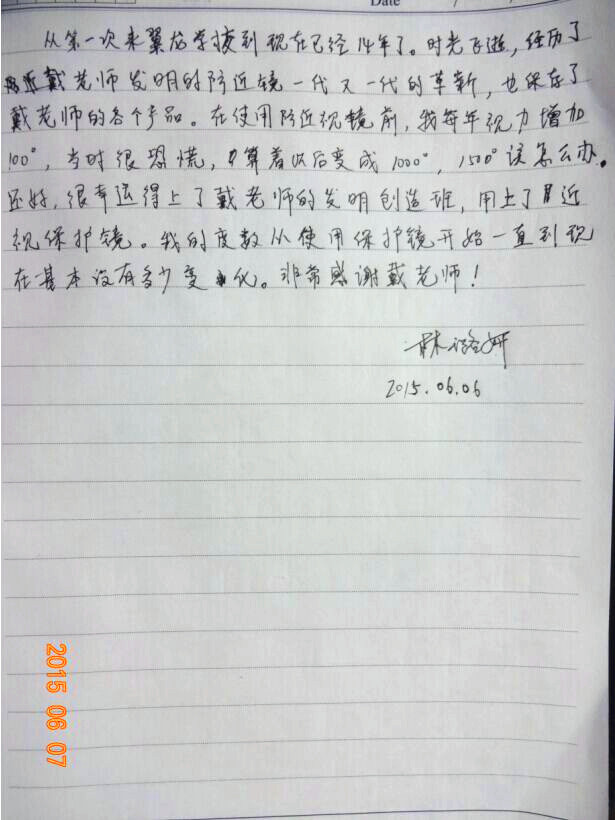 Date
从第一次来翼龙学校到现在已经14年了。时光飞逝，经历了
戴老师发明的防近镜一代又一代的革新，也保存了
戴老师的各个产品。在使用防近视镜前，我每年视力增加
100°，当时很恐慌，算着以后变成1000°，1500°该怎么办。
还好，很幸运得上了戴老师的发明创造班，用上了近
视保护镜。我的度数从使用保护镜开始一直到现
在基本没有多少变化。非常感谢戴老师！
林妍
2015.06.06
2015 06 07